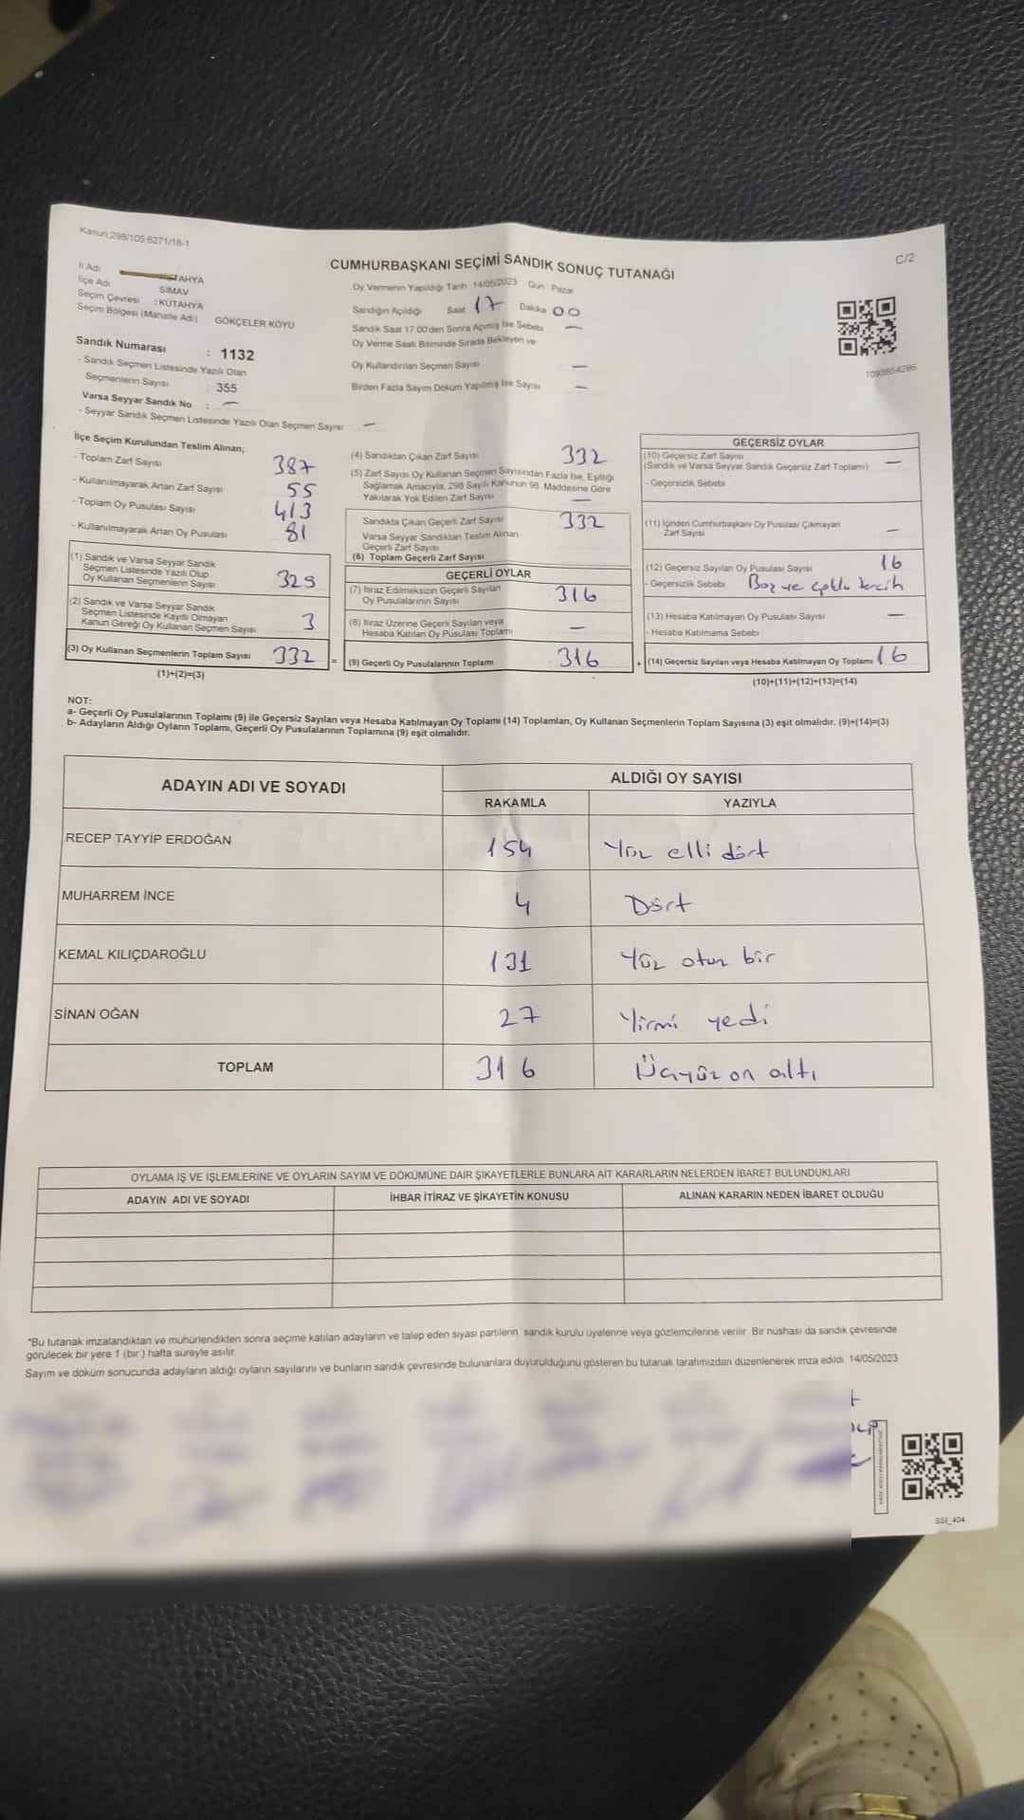 Kanun:298/105 6271/18-1
C/2
CUMHURBAŞKANI SEÇİMİ SANDIK SONUÇ TUTANAĞI
İl Adı TAHYA
İlçe Adı SİMAV
Seçim Çevresi : KÜTAHYA
Seçim Bölgesi (Mahalle Adı) GÖKÇELER KÖYÜ
Sandık Numarası : 1132
- Sandık Seçmen Listesinde Yazılı Olan
Seçmenlerin Sayısı : 355
Varsa Seyyar Sandık No : —
- Seyyar Sandık Seçmen Listesinde Yazılı Olan Seçmen Sayısı —
Oy Vermenin Yapıldığı Tarih 14/05/2023 Gün : Pazar
Sandığın Açıldığı Saat 17 Dakika 00
Sandık Saat 17:00'den Sonra Açılmış İse Sebebi —
Oy Verme Saati Bitiminde Sırada Bekleyen ve
Oy Kullandırılan Seçmen Sayısı —
Birden Fazla Sayım Döküm Yapılmış İse Sayısı —
1093654286
İlçe Seçim Kurulundan Teslim Alınan;
- Toplam Zarf Sayısı 387
- Kullanılmayarak Artan Zarf Sayısı 55
- Toplam Oy Pusulası Sayısı 413
- Kullanılmayarak Artan Oy Pusulası 81
(1) Sandık ve Varsa Seyyar Sandık
Seçmen Listesinde Yazılı Olup
Oy Kullanan Seçmenlerin Sayısı 329
(2) Sandık ve Varsa Seyyar Sandık
Seçmen Listesinde Kaydı Olmayan
Kanun Gereği Oy Kullanan Seçmen Sayısı 3
(3) Oy Kullanan Seçmenlerin Toplam Sayısı 332 =
(1)+(2)=(3)
(4) Sandıktan Çıkan Zarf Sayısı 332
(5) Zarf Sayısı Oy Kullanan Seçmen Sayısından Fazla İse, Eşitliği
Sağlamak Amacıyla, 298 Sayılı Kanunun 98. Maddesine Göre
Yakılarak Yok Edilen Zarf Sayısı —
Sandıkta Çıkan Geçerli Zarf Sayısı 332
Varsa Seyyar Sandıktan Teslim Alınan
Geçerli Zarf Sayısı
(6) Toplam Geçerli Zarf Sayısı
GEÇERLİ OYLAR
(7) İtiraz Edilmeksizin Geçerli Sayılan
Oy Pusulalarının Sayısı 316
(8) İtiraz Üzerine Geçerli Sayılan veya
Hesaba Katılan Oy Pusulası Toplamı —
(9) Geçerli Oy Pusulalarının Toplamı 316 +
GEÇERSİZ OYLAR
(10) Geçersiz Zarf Sayısı
(Sandık ve Varsa Seyyar Sandık Geçersiz Zarf Toplamı) —
- Geçersizlik Sebebi
(11) İçinden Cumhurbaşkanı Oy Pusulası Çıkmayan
Zarf Sayısı —
(12) Geçersiz Sayılan Oy Pusulası Sayısı 16
- Geçersizlik Sebebi Boş ve çoklu tercih
(13) Hesaba Katılmayan Oy Pusulası Sayısı —
- Hesaba Katılmama Sebebi
(14) Geçersiz Sayılan veya Hesaba Katılmayan Oy Toplamı 16
(10)+(11)+(12)+(13)=(14)
NOT:
a- Geçerli Oy Pusulalarının Toplamı (9) ile Geçersiz Sayılan veya Hesaba Katılmayan Oy Toplamı (14) Toplamları, Oy Kullanan Seçmenlerin Toplam Sayısına (3) eşit olmalıdır. (9)+(14)=(3)
b- Adayların Aldığı Oyların Toplamı, Geçerli Oy Pusulalarının Toplamına (9) eşit olmalıdır.
ADAYIN ADI VE SOYADI ALDIĞI OY SAYISI
RAKAMLA YAZIYLA
RECEP TAYYİP ERDOĞAN 154 Yüz elli dört
MUHARREM İNCE 4 Dört
KEMAL KILIÇDAROĞLU 131 Yüz otuz bir
SİNAN OĞAN 27 Yirmi yedi
TOPLAM 316 Üçyüz on altı
OYLAMA İŞ VE İŞLEMLERİNE VE OYLARIN SAYIM VE DÖKÜMÜNE DAİR ŞİKAYETLERLE BUNLARA AİT KARARLARIN NELERDEN İBARET BULUNDUKLARI
ADAYIN ADI VE SOYADI İHBAR İTİRAZ VE ŞİKAYETİN KONUSU ALINAN KARARIN NEDEN İBARET OLDUĞU
*Bu tutanak imzalandıktan ve mühürlendikten sonra seçime katılan adayların ve talep eden siyasi partilerin sandık kurulu üyelerine veya gözlemcilerine verilir. Bir nüshası da sandık çevresinde
görülecek bir yere 1 (bir) hafta süreyle asılır.
Sayım ve döküm sonucunda adayların aldığı oyların sayılarını ve bunların sandık çevresinde bulunanlara duyurulduğunu gösteren bu tutanak tarafımızdan düzenlenerek imza edildi. 14/05/2023
SSI_404